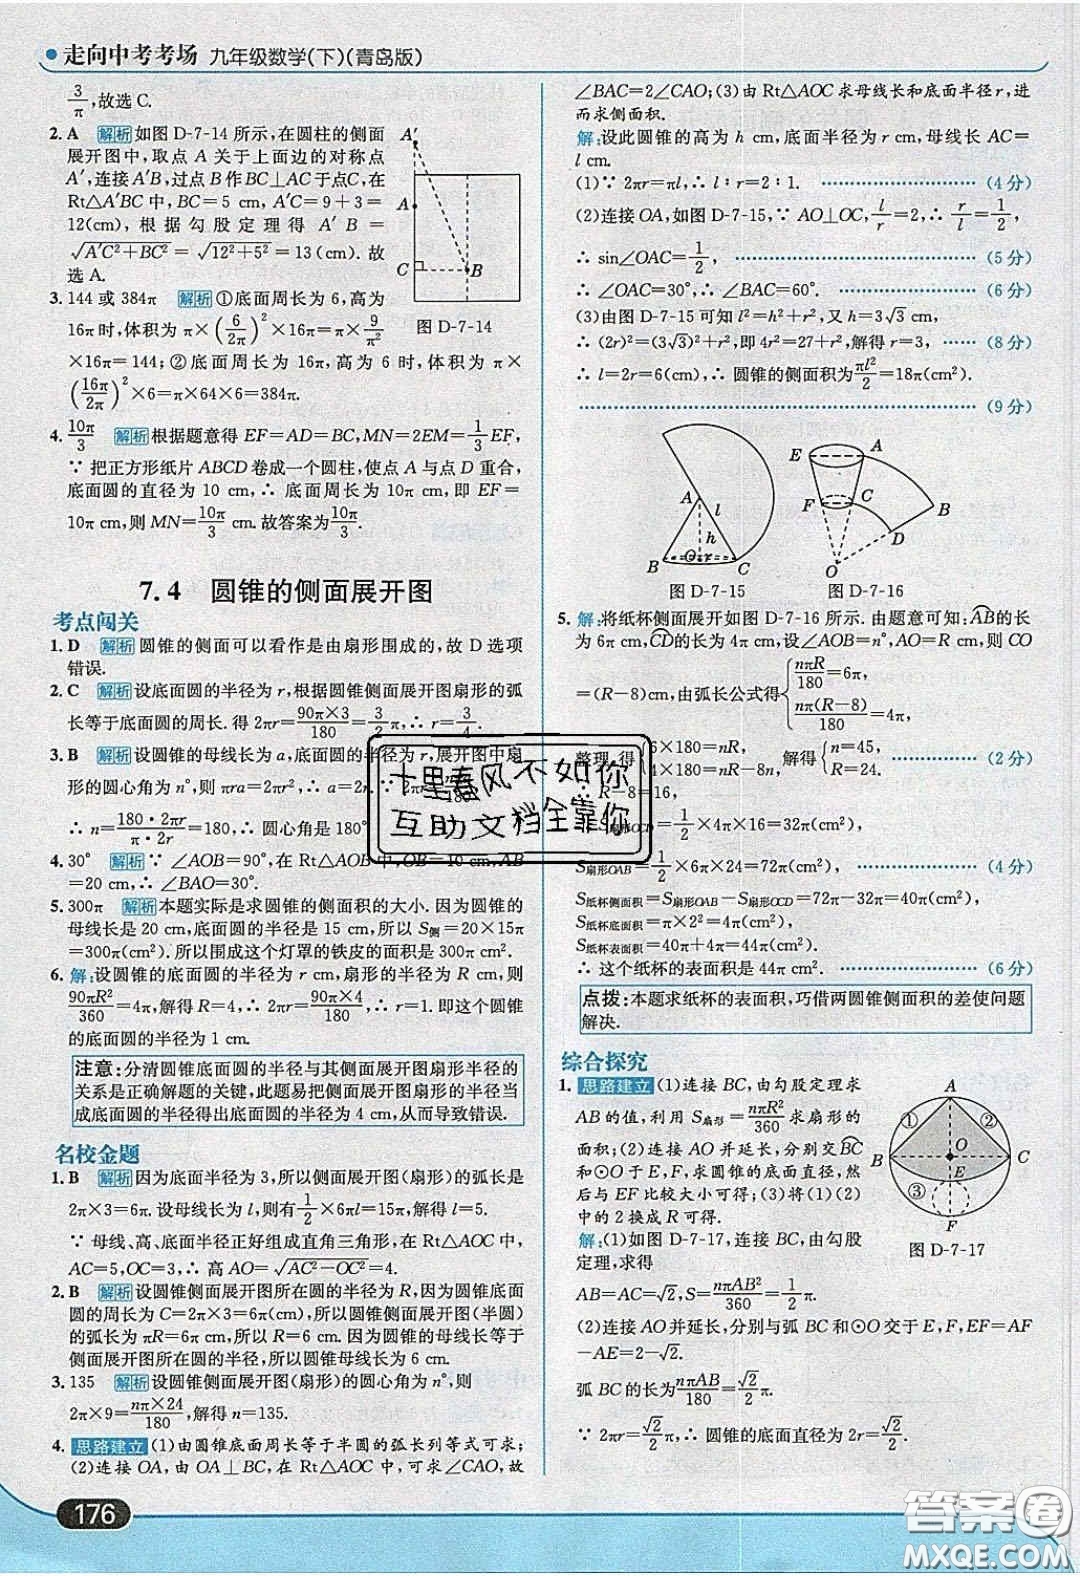 走向中考考场 九年级数学(下)(青岛版)
3/π,故选C.
2. A 解析 如图 D-7-14 所示,在圆柱的侧面
展开图中,取点 A 关于上面边的对称点
A′,连接 A′B,过点 B 作 BC⊥AC 于点C,在
Rt△A′BC 中,BC=5 cm,A′C=9+3=
12(cm),根据勾股定理得 A′B=
√(A′C²+BC²)=√(12²+5²)=13(cm).故
选 A.
A′
A
C
B
图 D-7-14
3. 144 或 384π 解析 ①底面周长为 6,高为
16π时,体积为 π×(6/2π)²×16π=π×9/π²
×16π=144;②底面周长为 16π,高为 6 时,体积为 π×
(16π/2π)²×6=π×64×6=384π.
4. 10π/3 解析 根据题意得 EF=AD=BC,MN=2EM=1/3EF,
∵ 把正方形纸片 ABCD 卷成一个圆柱,使点 A 与点 D 重合,
底面圆的直径为 10 cm,∴ 底面周长为 10π cm,即 EF=
10π cm,则 MN=10π/3 cm.故答案为10π/3.
7.4 圆锥的侧面展开图
考点闯关
1. D 解析 圆锥的侧面可以看作是由扇形围成的,故 D 选项
错误.
2. C 解析 设底面圆的半径为 r,根据圆锥侧面展开图扇形的弧
长等于底面圆的周长.得 2πr=90π×3/180=3/2π,∴ r=3/4.
3. B 解析 设圆锥的母线长为 a,底面圆的半径为 r,展开图中扇
形的圆心角为 n°,则 πra=2πr²,∴ a=2r.∵ 2πr=
180
∴ n=180·2πr/π·2r=180,∴ 圆心角是 180°
4. 30° 解析 ∵ ∠AOB=90°,在 Rt△AOB 中,OB=10 cm,AB
=20 cm,∴ ∠BAO=30°.
5. 300π 解析 本题实际是求圆锥的侧面积的大小.因为圆锥的
母线长是 20 cm,底面圆的半径是 15 cm,所以 S侧=20×15π
=300π(cm²).所以围成这个灯罩的铁皮的面积是 300π cm².
6. 解:设圆锥的底面圆的半径为 r cm,扇形的半径为 R cm,则
90πR²/360=4π,解得 R=4,∴ 2πr=90π×4/180,∴ r=1.即这个圆锥
的底面圆的半径为 1 cm.
注意:分清圆锥底面圆的半径与其侧面展开图扇形半径的
关系是正确解题的关键,此题易把侧面展开图扇形的半径当
成底面圆的半径得出底面圆的半径为 4 cm,从而导致错误.
名校金题
1. B 解析 因为底面半径为 3,所以侧面展开图(扇形)的弧长是
2π×3=6π.设母线长为 l,则有1/2×6πl=15π,解得 l=5.
∵ 母线、高、底面半径正好组成直角三角形,在 Rt△AOC 中,
AC=5,OC=3,∴ 高 AO=√(AC²-OC²)=4.
2. B 解析 设圆锥侧面展开图所在圆的半径为 R,因为圆锥底面
圆的周长为 C=2π×3=6π(cm),所以圆锥侧面展开图(半圆)
的弧长为 πR=6π cm,所以 R=6 cm.因为圆锥的母线长等于
侧面展开图所在圆的半径,所以圆锥母线长为 6 cm.
3. 135 解析 设圆锥侧面展开图(扇形)的圆心角为 n°,则
2π×9=nπ×24/180,解得 n=135.
4. 思路建立 (1)由圆锥底面周长等于半圆的弧长列等式可求;
(2)连接 OA,由 OA⊥BC,在 Rt△AOC 中,可求∠CAO,故
176
∠BAC=2∠CAO;(3)由 Rt△AOC 求母线长和底面半径 r,进
而求侧面积.
解:设此圆锥的高为 h cm,底面半径为 r cm,母线长 AC=
l cm.
(1)∵ 2πr=πl,∴ l∶r=2∶1. (4 分)
(2)连接 OA,如图 D-7-15,∵ AO⊥OC,l/r=2,∴ r/l=1/2,
∴ sin∠OAC=1/2, (5 分)
∴ ∠OAC=30°,∴ ∠BAC=60°. (6 分)
(3)由图 D-7-15 可知 l²=h²+r²,又 h=3√3 cm,
∴ (2r)²=(3√3)²+r²,即 4r²=27+r²,解得 r=3, (8 分)
∴ l=2r=6(cm),∴ 圆锥的侧面积为πl²/2=18π(cm²).
(9 分)
A
l
h
B
O
r
C
图 D-7-15
E
A
F
C
B
D
O
图 D-7-16
5. 解:将纸杯侧面展开如图 D-7-16 所示.由题意可知:AB的长
为 6π cm,CD的长为 4π cm,设∠AOB=n°,AO=R cm,则 CO
=(R-8)cm,由弧长公式得{nπR/180=6π, nπ(R-8)/180=4π,
整理,得{6×180=nR, 4×180=nR-8n, 解得{n=45, R=24. (2 分)
∴ R-8=16,
S扇形OCD=1/2×4π×16=32π(cm²),
S扇形OAB=1/2×6π×24=72π(cm²). (4 分)
S纸杯侧面积=S扇形OAB-S扇形OCD=72π-32π=40π(cm²)
S纸杯底面积=π×2²=4π(cm²).
S纸杯表面积=40π+4π=44π(cm²).
∴ 这个纸杯的表面积是 44π cm². (6 分)
点拨:本题求纸杯的表面积,巧借两圆锥侧面积的差使问题
解决.
综合探究
1. 思路建立 (1)连接 BC,由勾股定理求
AB 的值,利用 S扇形=nπR²/360求扇形的
面积;(2)连接 AO 并延长,分别交BC
和⊙O 于 E,F,求圆锥的底面直径,然
后与 EF 比较大小可得;(3)将(1)(2)
中的 2 换成 R 可得.
A
①
②
O
B
C
E
③
F
图 D-7-17
解:(1)如图 D-7-17,连接 BC,由勾股
定理,求得
AB=AC=√2,S=nπAB²/360=1/2π.
(2)连接 AO 并延长,分别与弧 BC 和⊙O 交于 E,F,EF=AF
-AE=2-√2.
弧 BC 的长为nπAB/180=√2/2π.
∵ 2πr=√2/2π,∴ 圆锥的底面直径为 2r=√2/2.
十里春风不如你
互助文档全靠你
答案圈
MXQE.COM